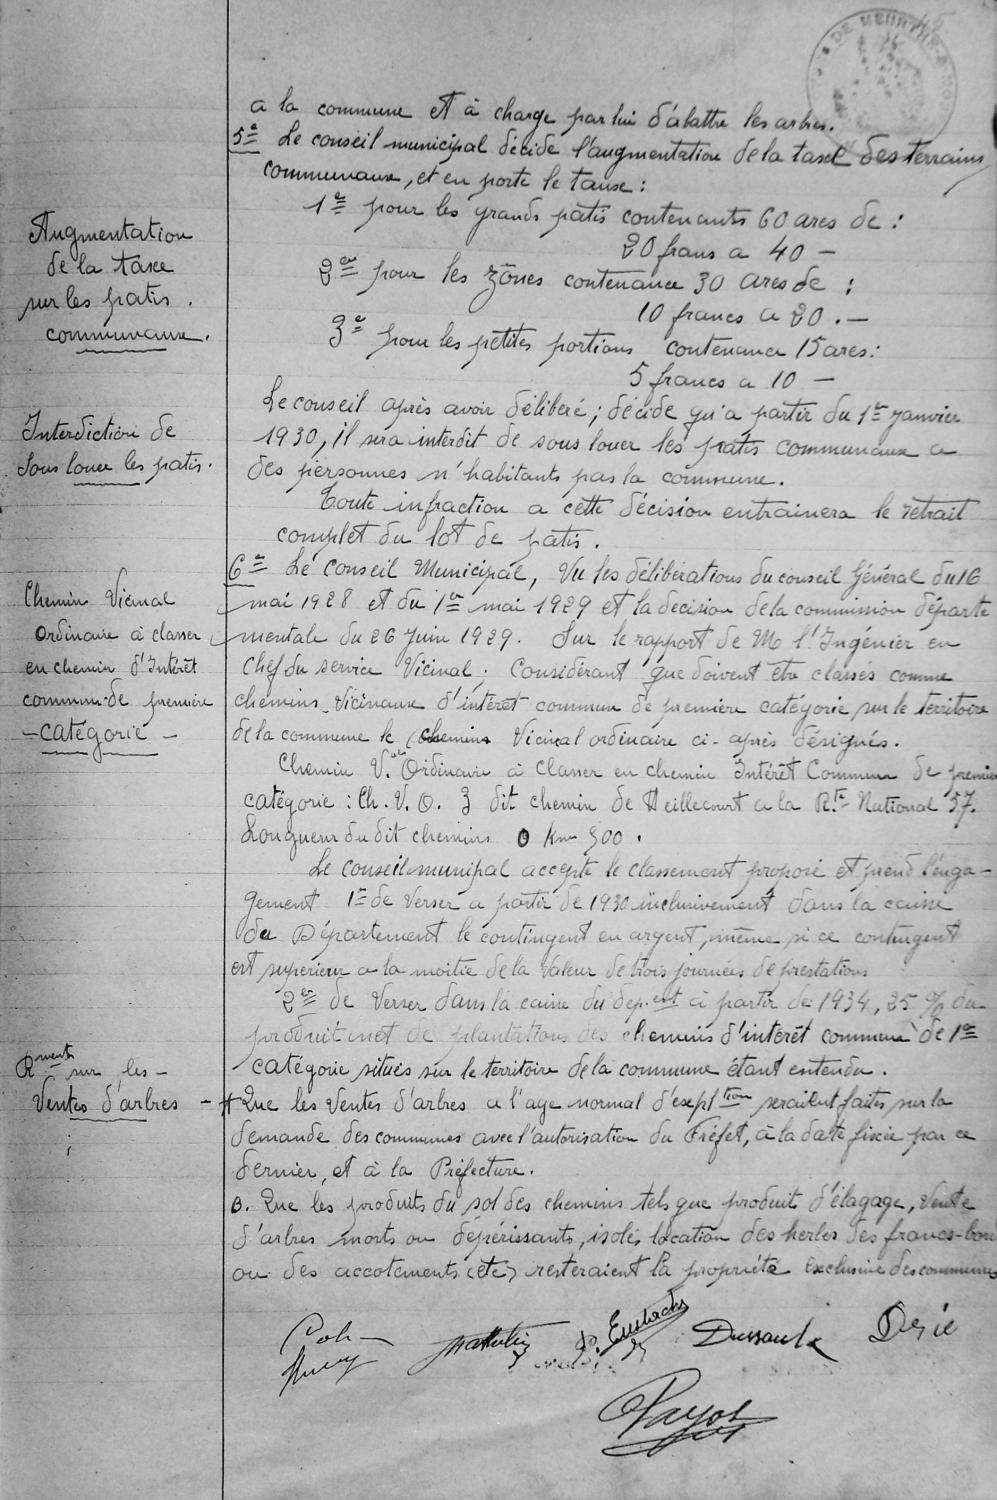 a la commune et à charge par lui d'abattre les arbres.
5e Le conseil municipal décide l'augmentation de la taxe des terrains
communaux, et en porte le taux :
Augmentation
de la taxe
sur les patis.
communaux.
1e pour les grands patis contenants 60 ares de :
20 frans a 40 —
2em pour les zônes contenance 30 ares de :
10 francs a 20. —
3e pour les petites portions contenance 15 ares :
5 francs a 10 —
Interdiction de
sous louer les patis.
Le conseil après avoir délibéré ; décide qu'a partir du 1er janvier
1930, il sera interdit de sous louer les patis communaux a
des personnes n'habitants pas la commune.
Toute infraction a cette décision entrainera le retrait
complet du lot de patis.
Chemin Vicinal
Ordinaire à classer
en chemin d'Intérêt
commun de première
— catégorie —
6e Le Conseil Municipal, Vu les délibérations du conseil Général du 16
mai 1928 et du 1er mai 1929 et la decision de la commission départe
mentale du 26 Juin 1929. Sur le rapport de Mr l'Ingénier en
Chef du service Vicinal ; Considérant que doivent être classés comme
chemins Vicinaux d'intérêt commun de première catégorie sur le territoire
de la commune le chemins Vicinal ordinaire ci-après désignés.
Chemin V. Ordinaire à Classer en chemin Intérêt Commun de premier
catégorie : Ch. V. O. 3 dit chemin de Heillecourt a la Rte National 57.
Longueur du dit chemins 0 Km 300.
Le conseil munipal accepte le classement proposé et prend l'enga-
gement 1er de Verser a partir de 1930 inclusivement dans la caisse
du Département le contingent en argent, même si ce contingent
est superieur a la moitié de la Valeur de trois journées de prestations
2em de Verser dans la caisse du dep.ent à partir de 1934, 25 % du
produit net de plantations des chemins d'intérêt commun de 1er
catégorie situés sur le territoire de la commune étant entendu.
Rments sur les —
Ventes d'arbres —
A Que les Ventes d'arbres a l'age normal d'expltion seraient faites sur la
demande des communes avec l'autorisation du Préfet, à la date fixée par ce
dernier, et à la Préfecture.
B. Que les produits du sol des chemins tels que produit d'élagage, Vente
d'arbres morts ou dépérissants, isolés, location des herbes des francs-bord
ou des accotements (etc) resteraient la propriété exclusive des communes
Mathieu P. Eustache Dussaulx Desié
Payot